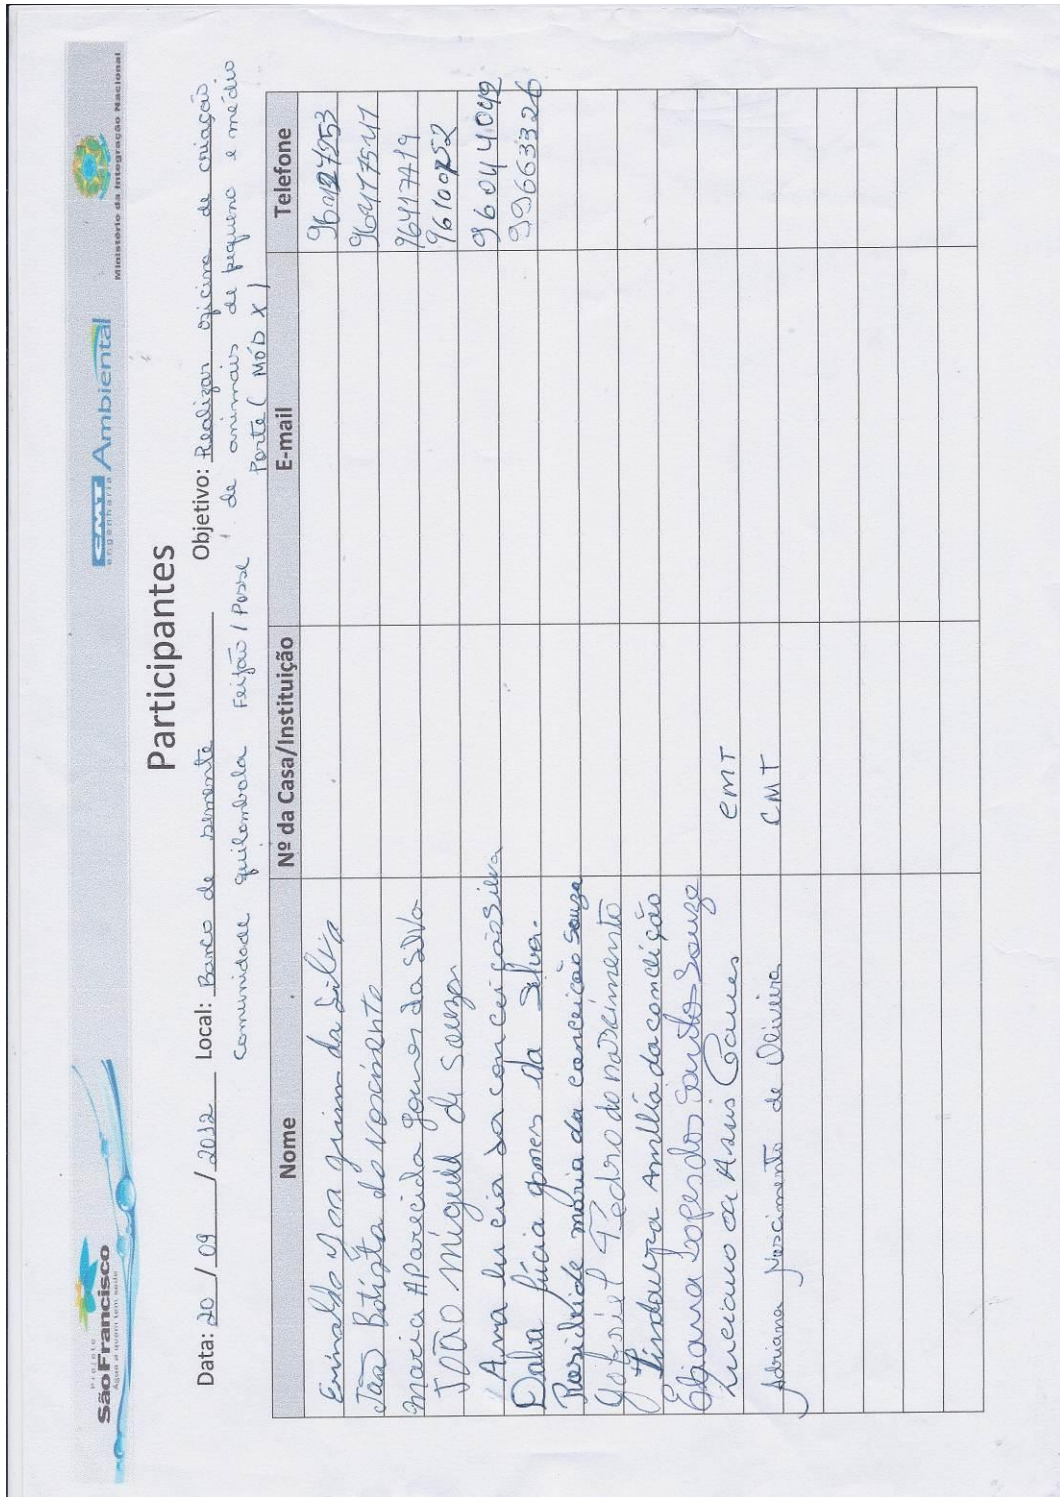 Projeto
São Francisco
Água a quem tem sede
CMT Ambiental
engenharia
Ministério da Integração Nacional
Participantes
Data: 20 / 09 / 2012 Local: Banco de semente Objetivo: Realizar oficina de criação
comunidade quilombola Feijão / Posse de animais de pequeno e médio
Porte ( MÓD X )
Nome Nº da Casa/Instituição E-mail Telefone
da Silva
João Batista do nascimento 96417547
maria APArecida gomes da silva 96417479
João miguel di souza
Ana lucia da conceição Silva 96044049
Dalva lúcia gomes da Silva. 99663326
Rosideide mária da conceição souza
Gabriel Pedro do nascimento
Lindaura Amélia da conceição
Eliana Lopes dos Santos Souza
Luciano de Assis CMT
Adriana Nascimento de Oliveira CMT